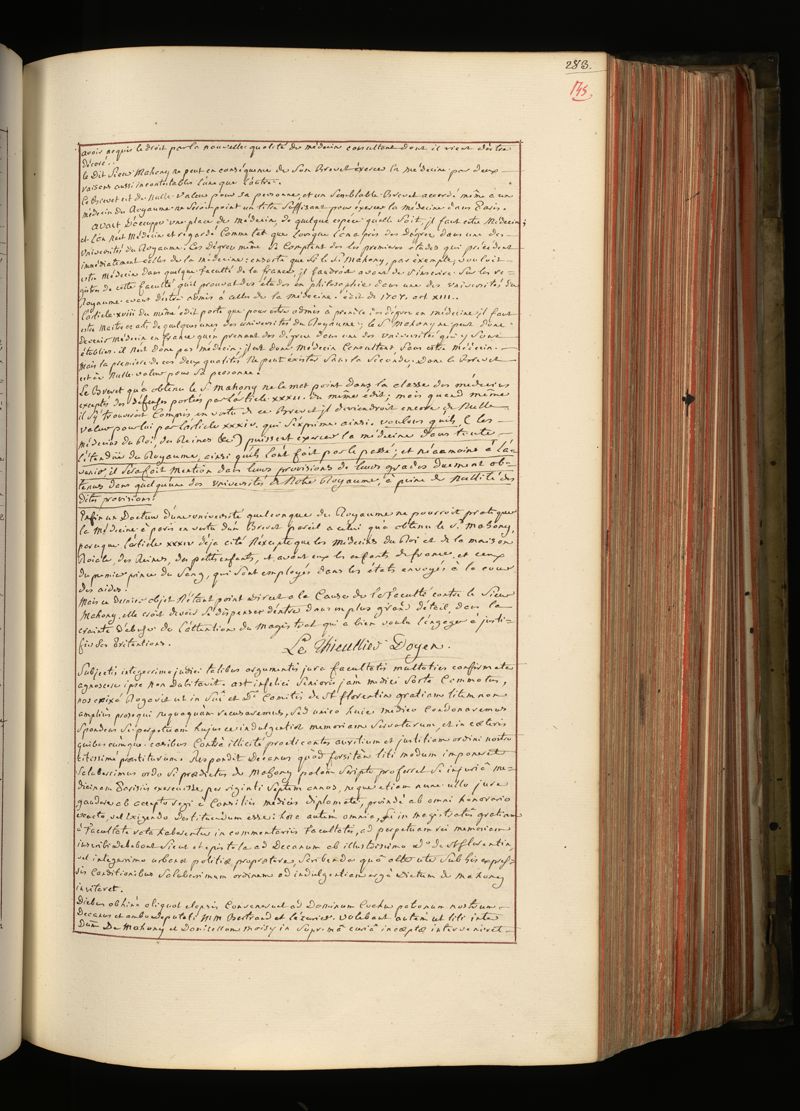 283.
145
avoir acquis le droit par la nouvelle qualité de médecin consultant dont il vient d'être
décoré..
le dit Sieur Mahony ne peut en conséquence de son Brevet éxercer la médecine par deux
raisons aussi incontestables l'une que l'autre.
Le Brevet est de nulle valeur pour sa personne, et un semblable Brevet accordé même à un
médecin du Royaume ne seroit point un titre suffisant pour éxercer la médecine dans Paris.
avant d'occuper une place de médecin, de quelque espece qu'elle soit, il faut estre Médecin;
et l'on n'est Médecin et regardé comme tel que lorsque l'on a pris des degrez dans une des
Universités du Royaume. Ces dégrez même se comptent dès les premieres études qui précédent
immédiatement celles de la médecine: ensorte que si le Sr. Mahony, par exemple, vouloit
estre Médecin dans quelque faculté de la france, il faudroit avant de s'inscrire sur les re-
gistres de cette faculté qu'il prouvat des études en philosophie dans une des universités du
Royaume avant d'estre admis à celles de la médecine. édit de 1707. art XIII..
L'article XVIII du même édit porte que pour estre admis à prendre des dégrez en médecine, il faut
estre Maitre es arts de quelques unes des universités du Royaume; le Sr. Mahony ne peut donc
devenir Médecin en france qu'en prennant des dégrez dans une des Universités qui y sont
établies. il n'est donc pas médecin; il est donc Médecin Consultant sans estre médecin.
Mais la premiere de ces deux qualités ne peut éxister sans la seconde. Donc le Brevet
est de nulle valeur pour sa personne.
Le Brevet qu'a obtenu le Sr. Mahony ne le met point dans la classe des médecins
exceptés des défenses portées par l'article XXXII. du même édit; mais quand même
il s'y trouveroit compris en vertu de ce Brevet, il deviendroit encore de nulle
valeur pour lui par l'article XXXIV. qui s'exprime ainsi. voulons qu'ils (les
médecins du Roi, des Reines &c) puissent exercer la médecine dans toute
l'étendüe du Royaume, ainsi qu'ils l'ont fait par le passé; et néanmoins à l'a-
venir, il sera fait mention dans leurs provisions de leurs grades duement ob-
tenus dans quelqu'une des universités de Notre Royaume, à peine de nullité des
dites provisions.
Enfin un Docteur d'une université quelconque du Royaume ne pourroit pratiquer
la Médecine à paris en vertu d'un Brevet pareil a celui qu'a obtenu le Sr. Mahony,
parce que l'article XXXIV déja cité n'excepte que les médecins du Roi et de la maison
Roiale, des Reines, des petits enfants, et avant eux les enfants de france, et ceux
du premier prince du sang, qui sont employés dans les états envoyés à la cour
des aides.
Mais ce dernier objet n'étant point direct a la Cause de la faculté contre le Sieur
Mahony, elle croit devoir se dispenser d'entrer dans un plus grand détail, dans la
crainte d'abuser de l'attention du Magistrat qui a bien voulu l'engager à justi-
fier ses prétentions.
Le Thieullier Doyen.
Subjectis integerrimo judici talibus argumentis jura facultatis multoties confirmata
agnoscere ipse non dubitavit. ast infelici senioris jàm medici sorte commotus,
nos enixè Rogavit ut in sui et D. Comitis de St florentin gratiam litem non
ampliùs prosequi nequaquàm recusaremus, sed unico huice medico condonaremus
spondens se perpetuam hujusce indulgentiæ memoriam servaturum, et in cæteris
quibuscumque casibus contrà illicitè practicantes auxilium et justitiam ordini nostro
citissimè præstiturum. Respondit Decanus quòd forsitan liti modum imponeret
saluberrimus ordo si prædictus de Mahony palàm scripto profiteret se injuriâ me-
dicinam Parisiis exercuisse per viginti septem annos, neque etiam nunc ullo jure
gaudere ab accepto regi à consiliis medicis diplomate, proindè ab omni honorario
exacto, vel exigendo destituendum esse: hæc autem omnia, si in magistratûs gratiam
à Facultate rata haberentur in commentariis Facultatis, ad perpetuam rei memoriam
inscribi debebant sicut et epistola ad Decanum ab illustrissimo D. de St florentin
vel integerrimo urbanæ politiæ præpositore scribenda quâ alteruter sub his expres-
sis conditionibus saluberrimum ordinem ad indulgentiam ergà dictum de Mahony
invitaret.
Diebus abhinc aliquot elapsis convenerunt ad Dominum Cochu patronum nostrum
Decanus et ambo deputati MM Bertrand et Lezurier. volebant autem ut liti inter
Dum De Mahony et Domicellam Moisy in supremâ curiâ inceptæ interveniret